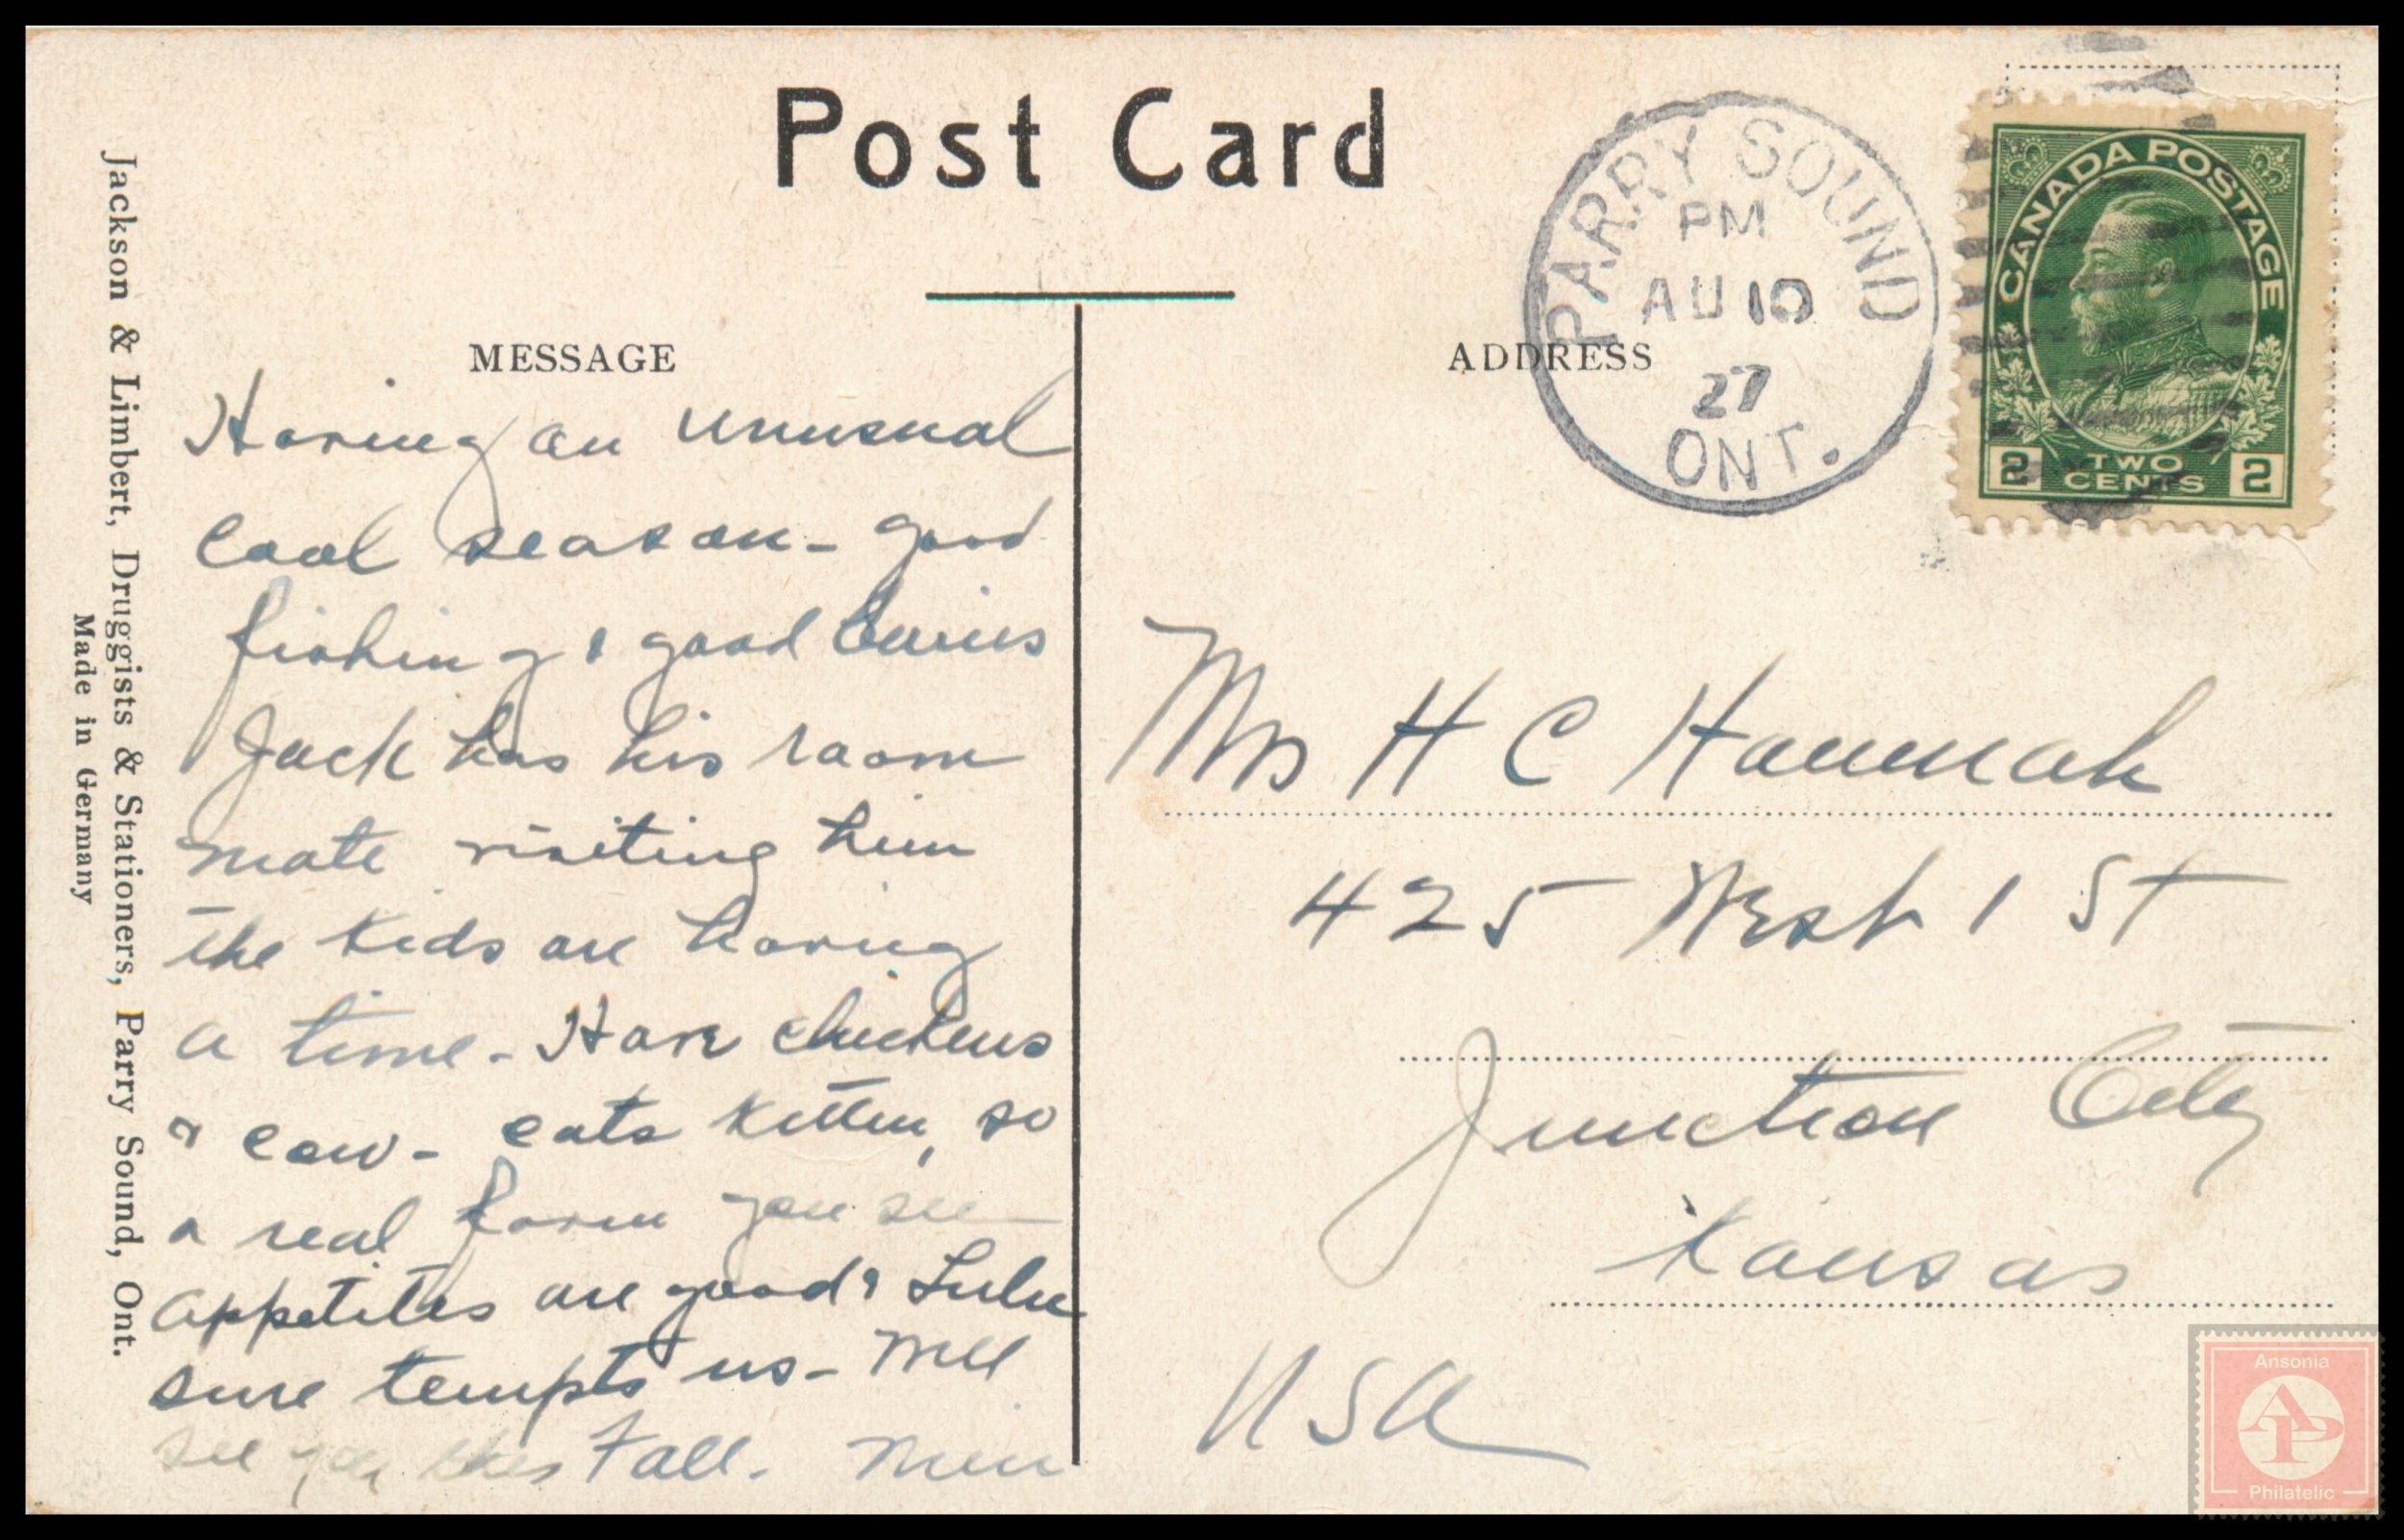 Post Card
MESSAGE
ADDRESS
PARRY SOUND
PM
AU 10
27
ONT.
CANADA POSTAGE
2 TWO CENTS 2
Having an unusual
cool season - good
fishing & good
Jack has his room
mate visiting him
the kids are having
a time - Have chickens
& cow - cats kitten, so
a real farm you see
appetites are good & Lulu
sure tempts us - Will
see you this Fall.
Mrs H C Hannah
425 West 1 St
Junction City
Kansas
USA
Jackson & Limbert, Druggists & Stationers, Parry Sound, Ont.
Made in Germany
Ansonia
AP
Philatelic